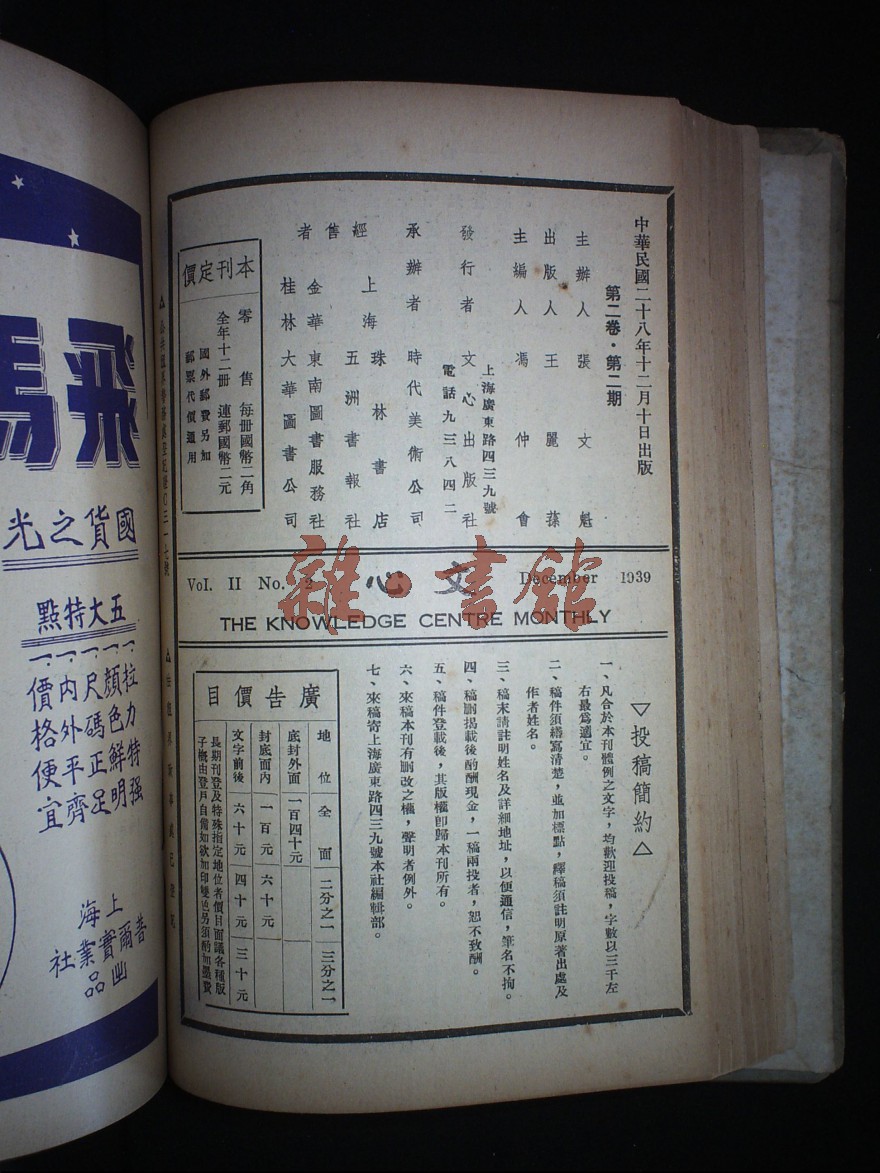 中華民國二十八年十二月十日出版
第二卷·第二期
主辦人 張文魁
出版人 王麗蓀
主編人 馮仲會
發行者 文心出版社
上海廣東路四三九號
電話九三八四二
承辦者 時代美術公司
經售者
上海珠林書店
五洲書報社
金華東南圖書服務社
桂林大華圖書公司
本刊定價
零售 每册國幣二角
全年十二册 連郵國幣二元
國外郵費另加
郵票代價通用
Vol. II No. 2
文心
December 1939
THE KNOWLEDGE CENTRE MONTHLY
雜·書館
▽投稿簡約△
一、凡合於本刊體例之文字，均歡迎投稿，字數以三千左
右最爲適宜。
二、稿件須繕寫清楚，並加標點，繹稿須註明原著出處及
作者姓名。
三、稿末請註明姓名及詳細地址，以便通信，筆名不拘。
四、稿删揭載後酌酬現金，一稿兩投者，恕不致酬。
五、稿件登載後，其版權卽歸本刊所有。
六、來稿本刊有删改之權，聲明者例外。
七、來稿寄上海廣東路四三九號本社編輯部。
廣告價目
地位 全面 二分之一 三分之一
底封外面 一百四十元
封底面内 一百元 六十元
文字前後 六十元 四十元 三十元
長期刊登及特殊指定地位者價目面議各種版
子概由登戶自備如欲加印雙色另須酌加墨費
飛馬
國貨之光
五大特點
一、拉力特强
一、顏色鮮明
一、尺碼正足
一、内外平齊
一、價格便宜
上海普爾實業社
出品